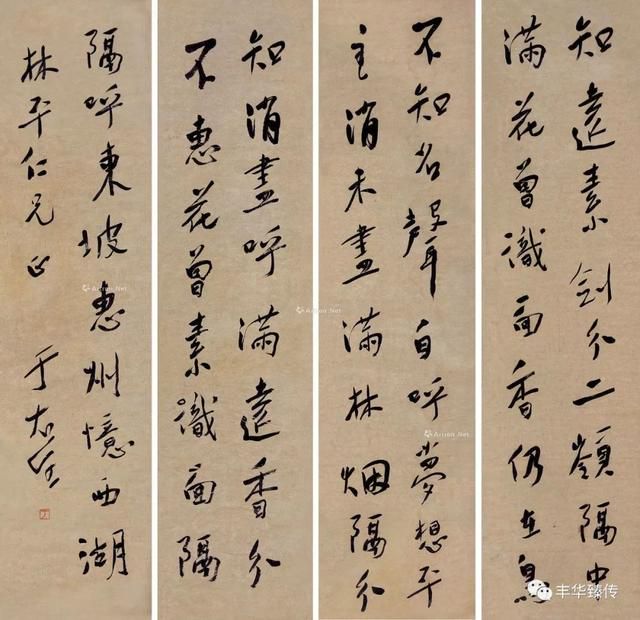 知遠素剑分二嶺隔中
滿花曾識面香仍在
不知名聲自呼夢想平
主消未盡滿林烟隔分
知消盡呼滿遠香分
不惠花曾素識面隔
隔呼東坡惠州憶西湖
林平仁兄正 于右任
Artron.Net
Artron.Net
Artron.Net
丰华臻传